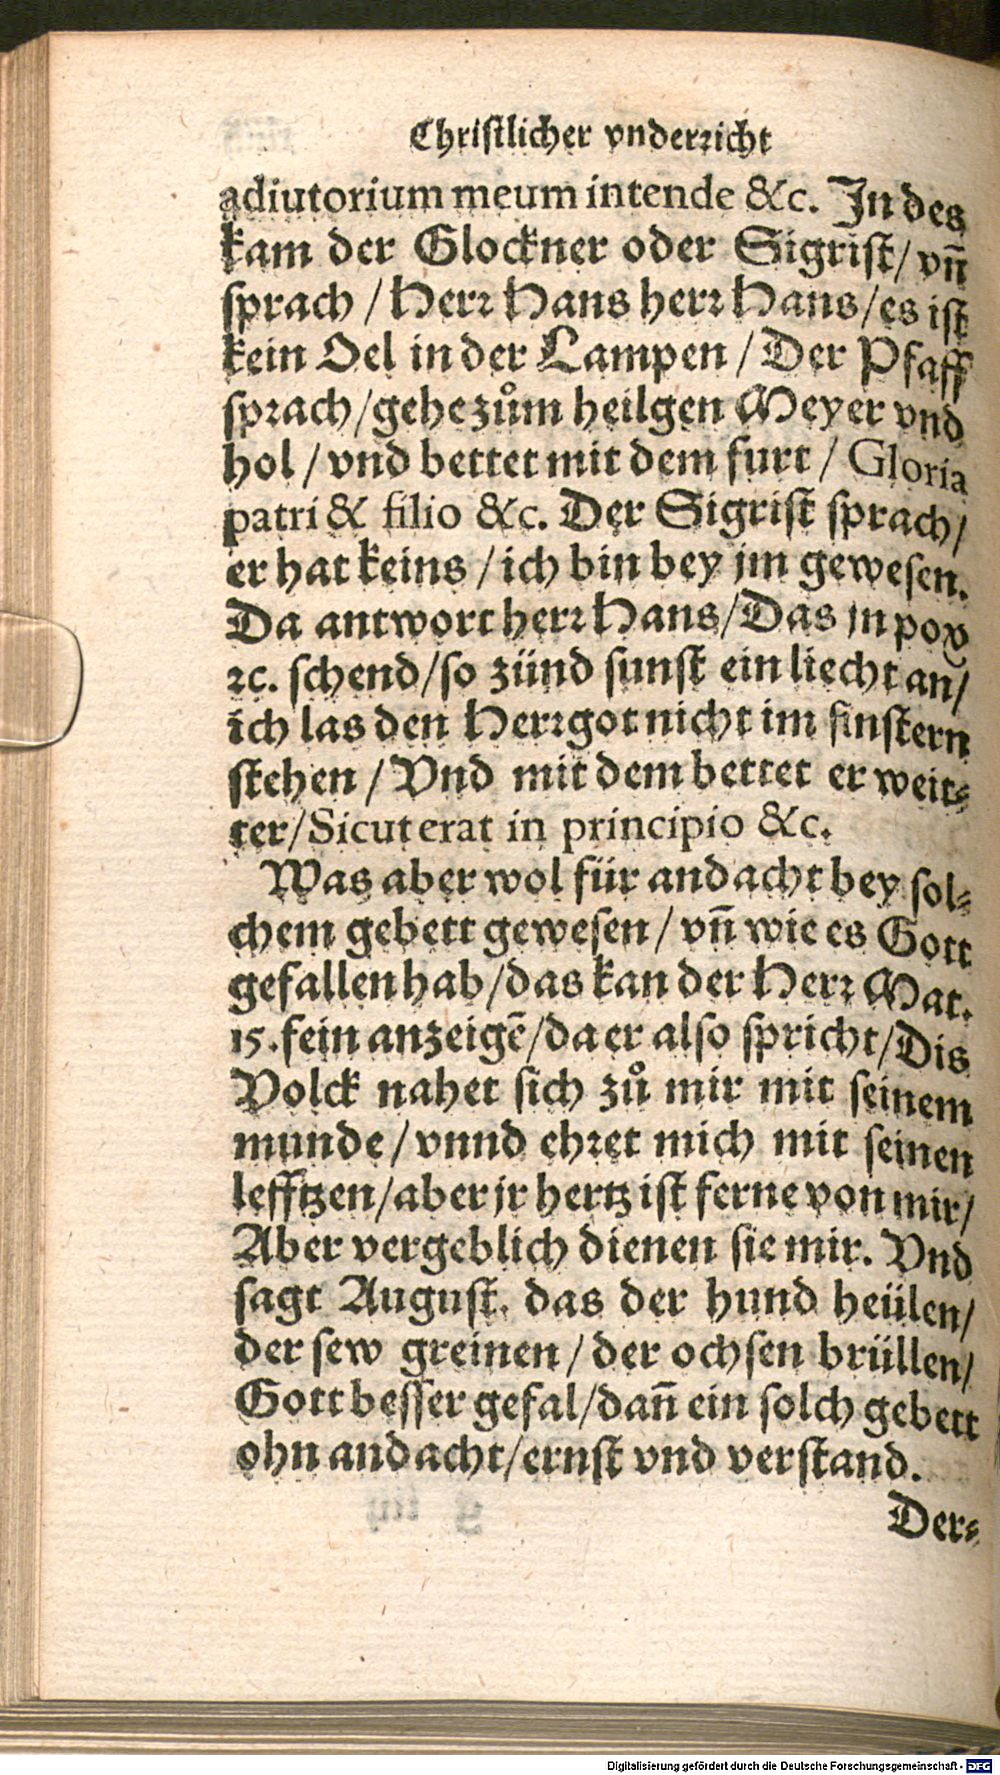 Christlicher vnderricht
adiutorium meum intende &c. In des
kam der Glockner oder Sigrist/ vn̄
sprach / Herr Hans herr Hans/es ist
kein Oel in der Lampen / Der Pfaff
sprach/gehe zům heilgen Meyer vnd
hol / vnd bettet mit dem furt / Gloria
patri & filio &c. Der Sigrist sprach/
er hat keins / ich bin bey jm gewesen.
Da antwort herr Hans/Das jn pox
ꝛc. schend/so zünd sunst ein liecht an/
ich las den Herrgot nicht im finstern
stehen / Vnd mit dem bettet er weit⸗
ter/Sicut erat in principio &c.
Was aber wol für andacht bey sol⸗
chem gebett gewesen / vn̄ wie es Gott
gefallen hab/das kan der Herr Mat.
15.fein anzeigē/da er also spricht/Dis
Volck nahet sich zů mir mit seinem
munde/vnnd ehret mich mit seinen
lefftzen/aber jr hertz ist ferne von mir/
Aber vergeblich dienen sie mir. Vnd
sagt August. das der hund heülen/
der sew greinen/der ochsen brüllen/
Gott besser gefal/dan̄ ein solch gebett
ohn andacht/ernst vnd verstand.
Der⸗
Digitalisierung gefördert durch die Deutsche Forschungsgemeinschaft - DFG